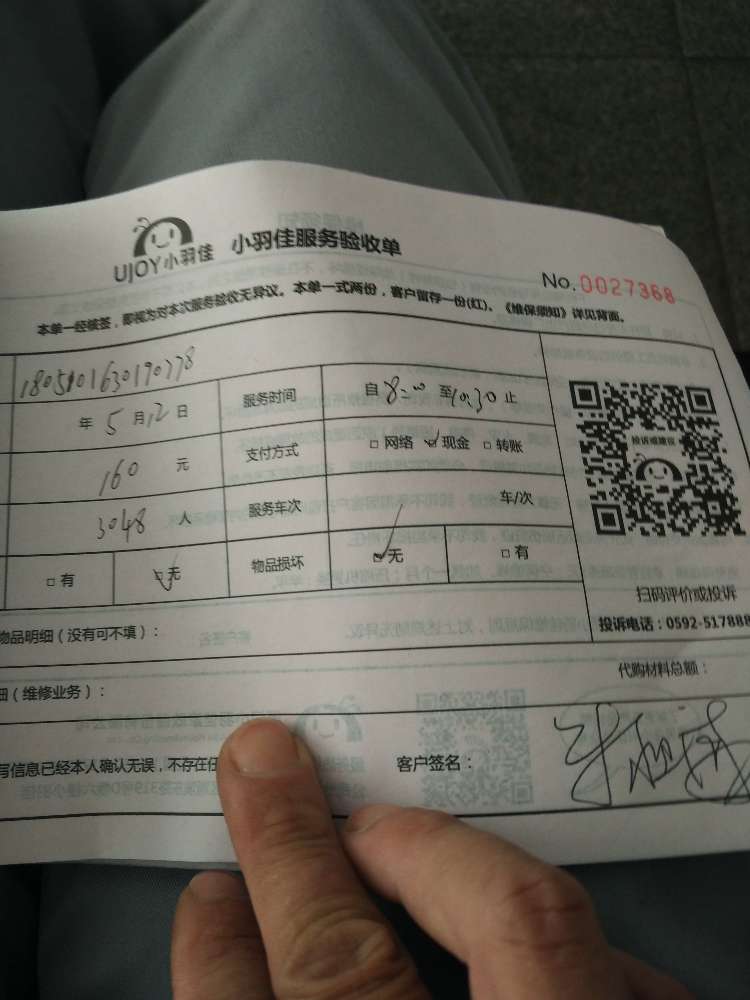 UJOY小羽佳 小羽佳服务验收单
No. 0027368
本单一经核签，即视为对本次服务验收无异议。本单一式两份，客户留存一份(红)。《维保须知》详见背面。
年 5 月 12 日 服务时间 自 8:00 至 10:30 止
160 元 支付方式 □ 网络 ☑ 现金 □ 转账
3048 人 服务车次 车/次
□ 有 ☑ 无 物品损坏 ☑ 无 □ 有
投诉或建议
扫码评价或投诉
投诉电话：0592-517888
物品明细（没有可不填）：
细（维修业务）：
代购材料总额：
写信息已经本人确认无误，不存在任
客户签名：